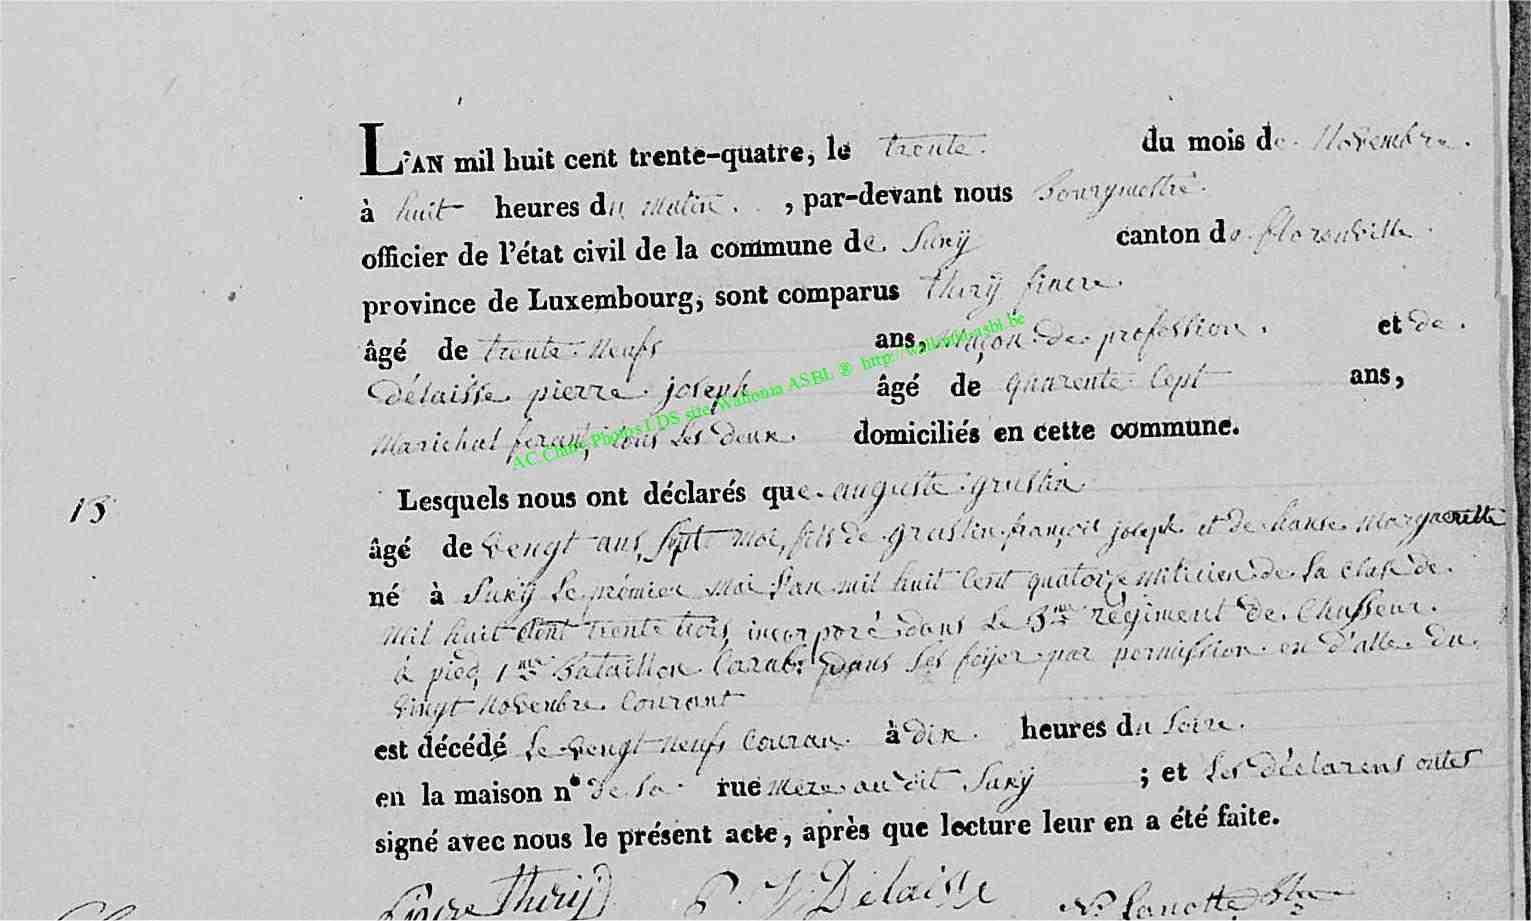 L'AN mil huit cent trente-quatre, le trente du mois de Novembre.
à huit heures du matin , par-devant nous bourgmestre
officier de l'état civil de la commune de Suxÿ canton de florenville
province de Luxembourg, sont comparus thirÿ
âgé de trente neufs ans, maçon de profession. et de.
Délaisse pierre joseph âgé de quarente sept ans,
Marichal ferant, tous les deux. domiciliés en cette commune.
AC.Chiny Photos LDS site Wallonia ASBL ® http://wallonia-asbl.be
15
Lesquels nous ont déclarés que auguste graslin
âgé de vengt ans, sept moi, fils de graslin françois joseph et de hanse Marguerette
né à Suxÿ le prémier Mai l'an mil huit cent quatorze milicien de la clase de
mil huit cent trente trois, incorporé dans le 3me régiment de Chasseur.
à pied, 1me Bataillon Carab: dans ses foÿer par permission en d'atte du
vingt Novembre courant
est décédé le vengt neufs couran à dix heures du soire.
en la maison n° de sa rue mère au dit Suxÿ ; et les déclarens ontes
signé avec nous le présent acte, après que lecture leur en a été faite.
Thirÿ P. J. Delaisse